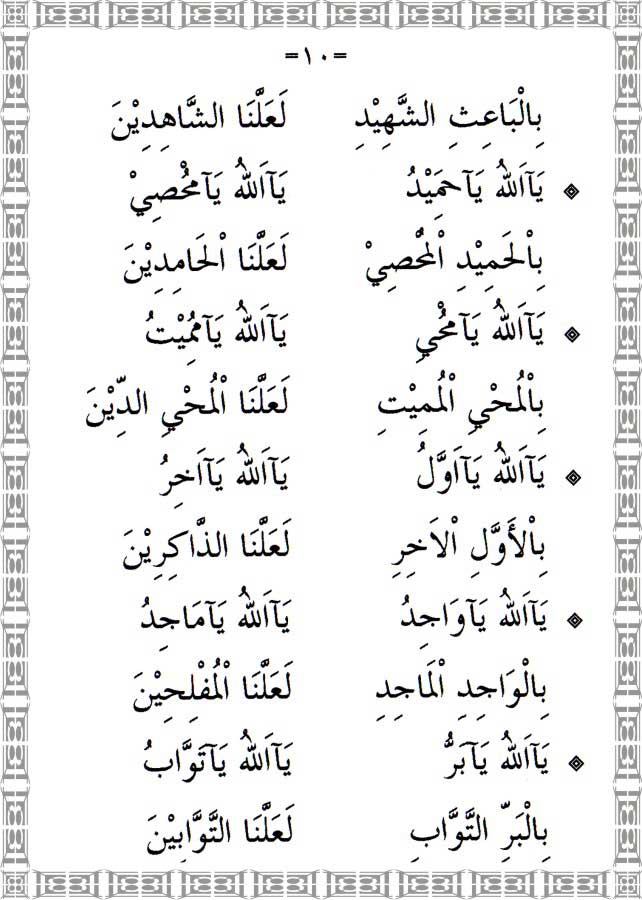 =١٠=
بِالْبَاعِثِ الشَّهِيْدِ لَعَلَّنَا الشَّاهِدِيْنَ
يَآاَللهُ يَآحَمِيْدُ يَآاَللهُ يَآمُحْصِيْ
بِاْلحَمِيْدِ اْلمُحْصِيْ لَعَلَّنَا اْلحَامِدِيْنَ
يَآاَللهُ يَآمُحْيِ يَآاَللهُ يَآمُمِيْتُ
بِاْلمُحْيِ اْلمُمِيْتِ لَعَلَّنَا اْلمُحْيِ الدِّيْنَ
يَآاَللهُ يَآاَوَّلُ يَآاَللهُ يَآاَخِرُ
بِاْلأَوَّلِ اْلاَخِرِ لَعَلَّنَا الذَّاكِرِيْنَ
يَآاَللهُ يَآوَاجِدُ يَآاَللهُ يَآمَاجِدُ
بِالْوَاجِدِ اْلمَاجِدِ لَعَلَّنَا اْلمُفْلِحِيْنَ
يَآاَللهُ يَآبَرُّ يَآاَللهُ يَآتَوَّابُ
بِالْبَرِّ التَّوَّابِ لَعَلَّنَا التَّوَّابِيْنَ